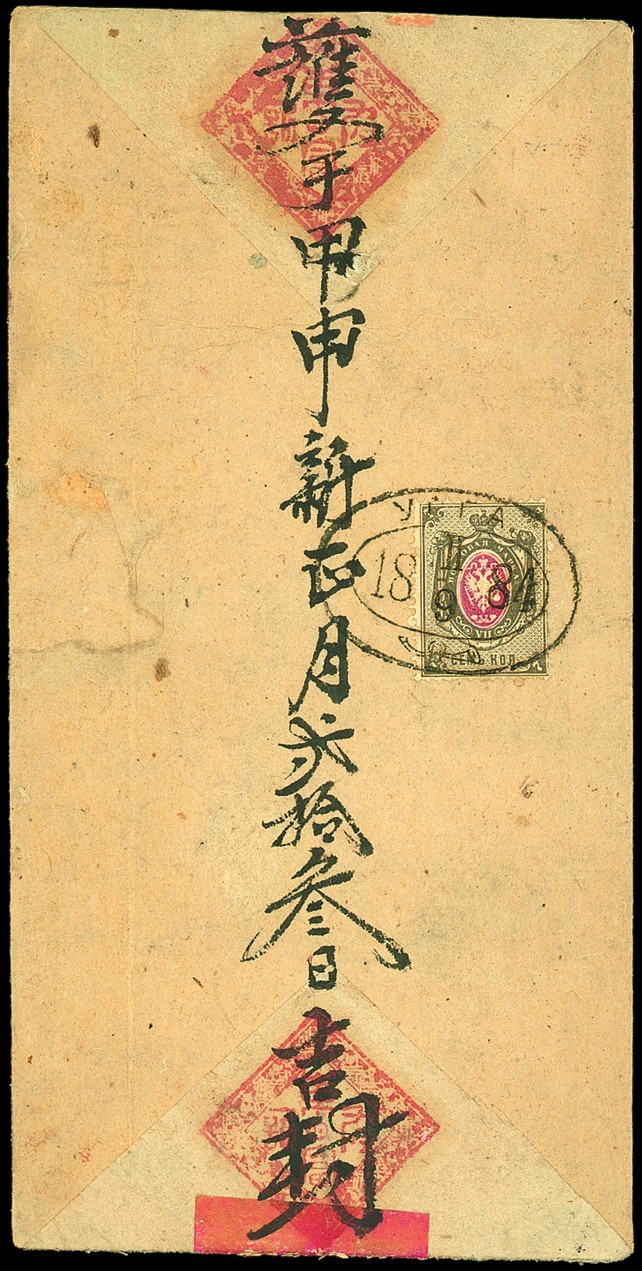 護于甲申新正月弍拾叁日吉封
УРГА
18 II 84
9
VII
СЕМЬ КОП.